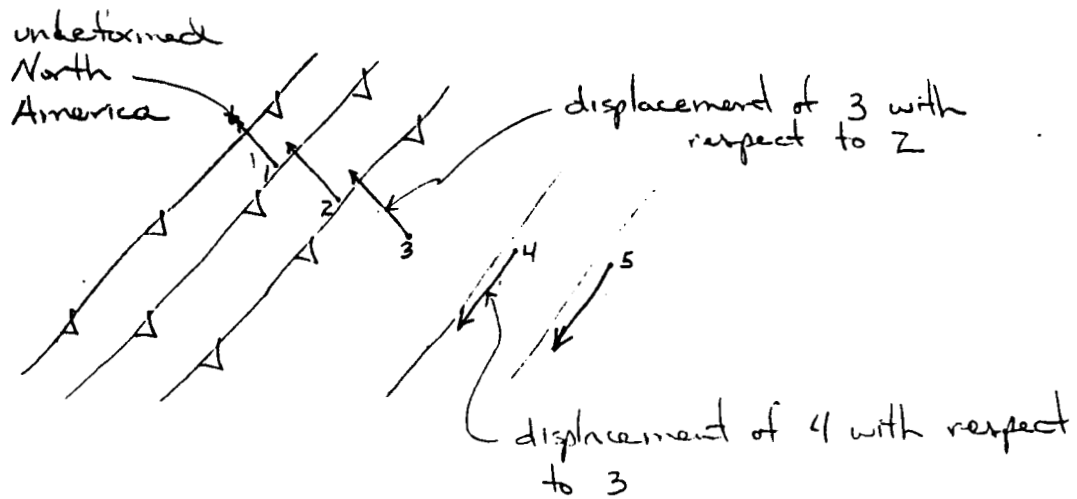 undeformed
North
America
displacement of 3 with
respect to 2
1
1
2
3
4
5
displacement of 4 with respect
to 3